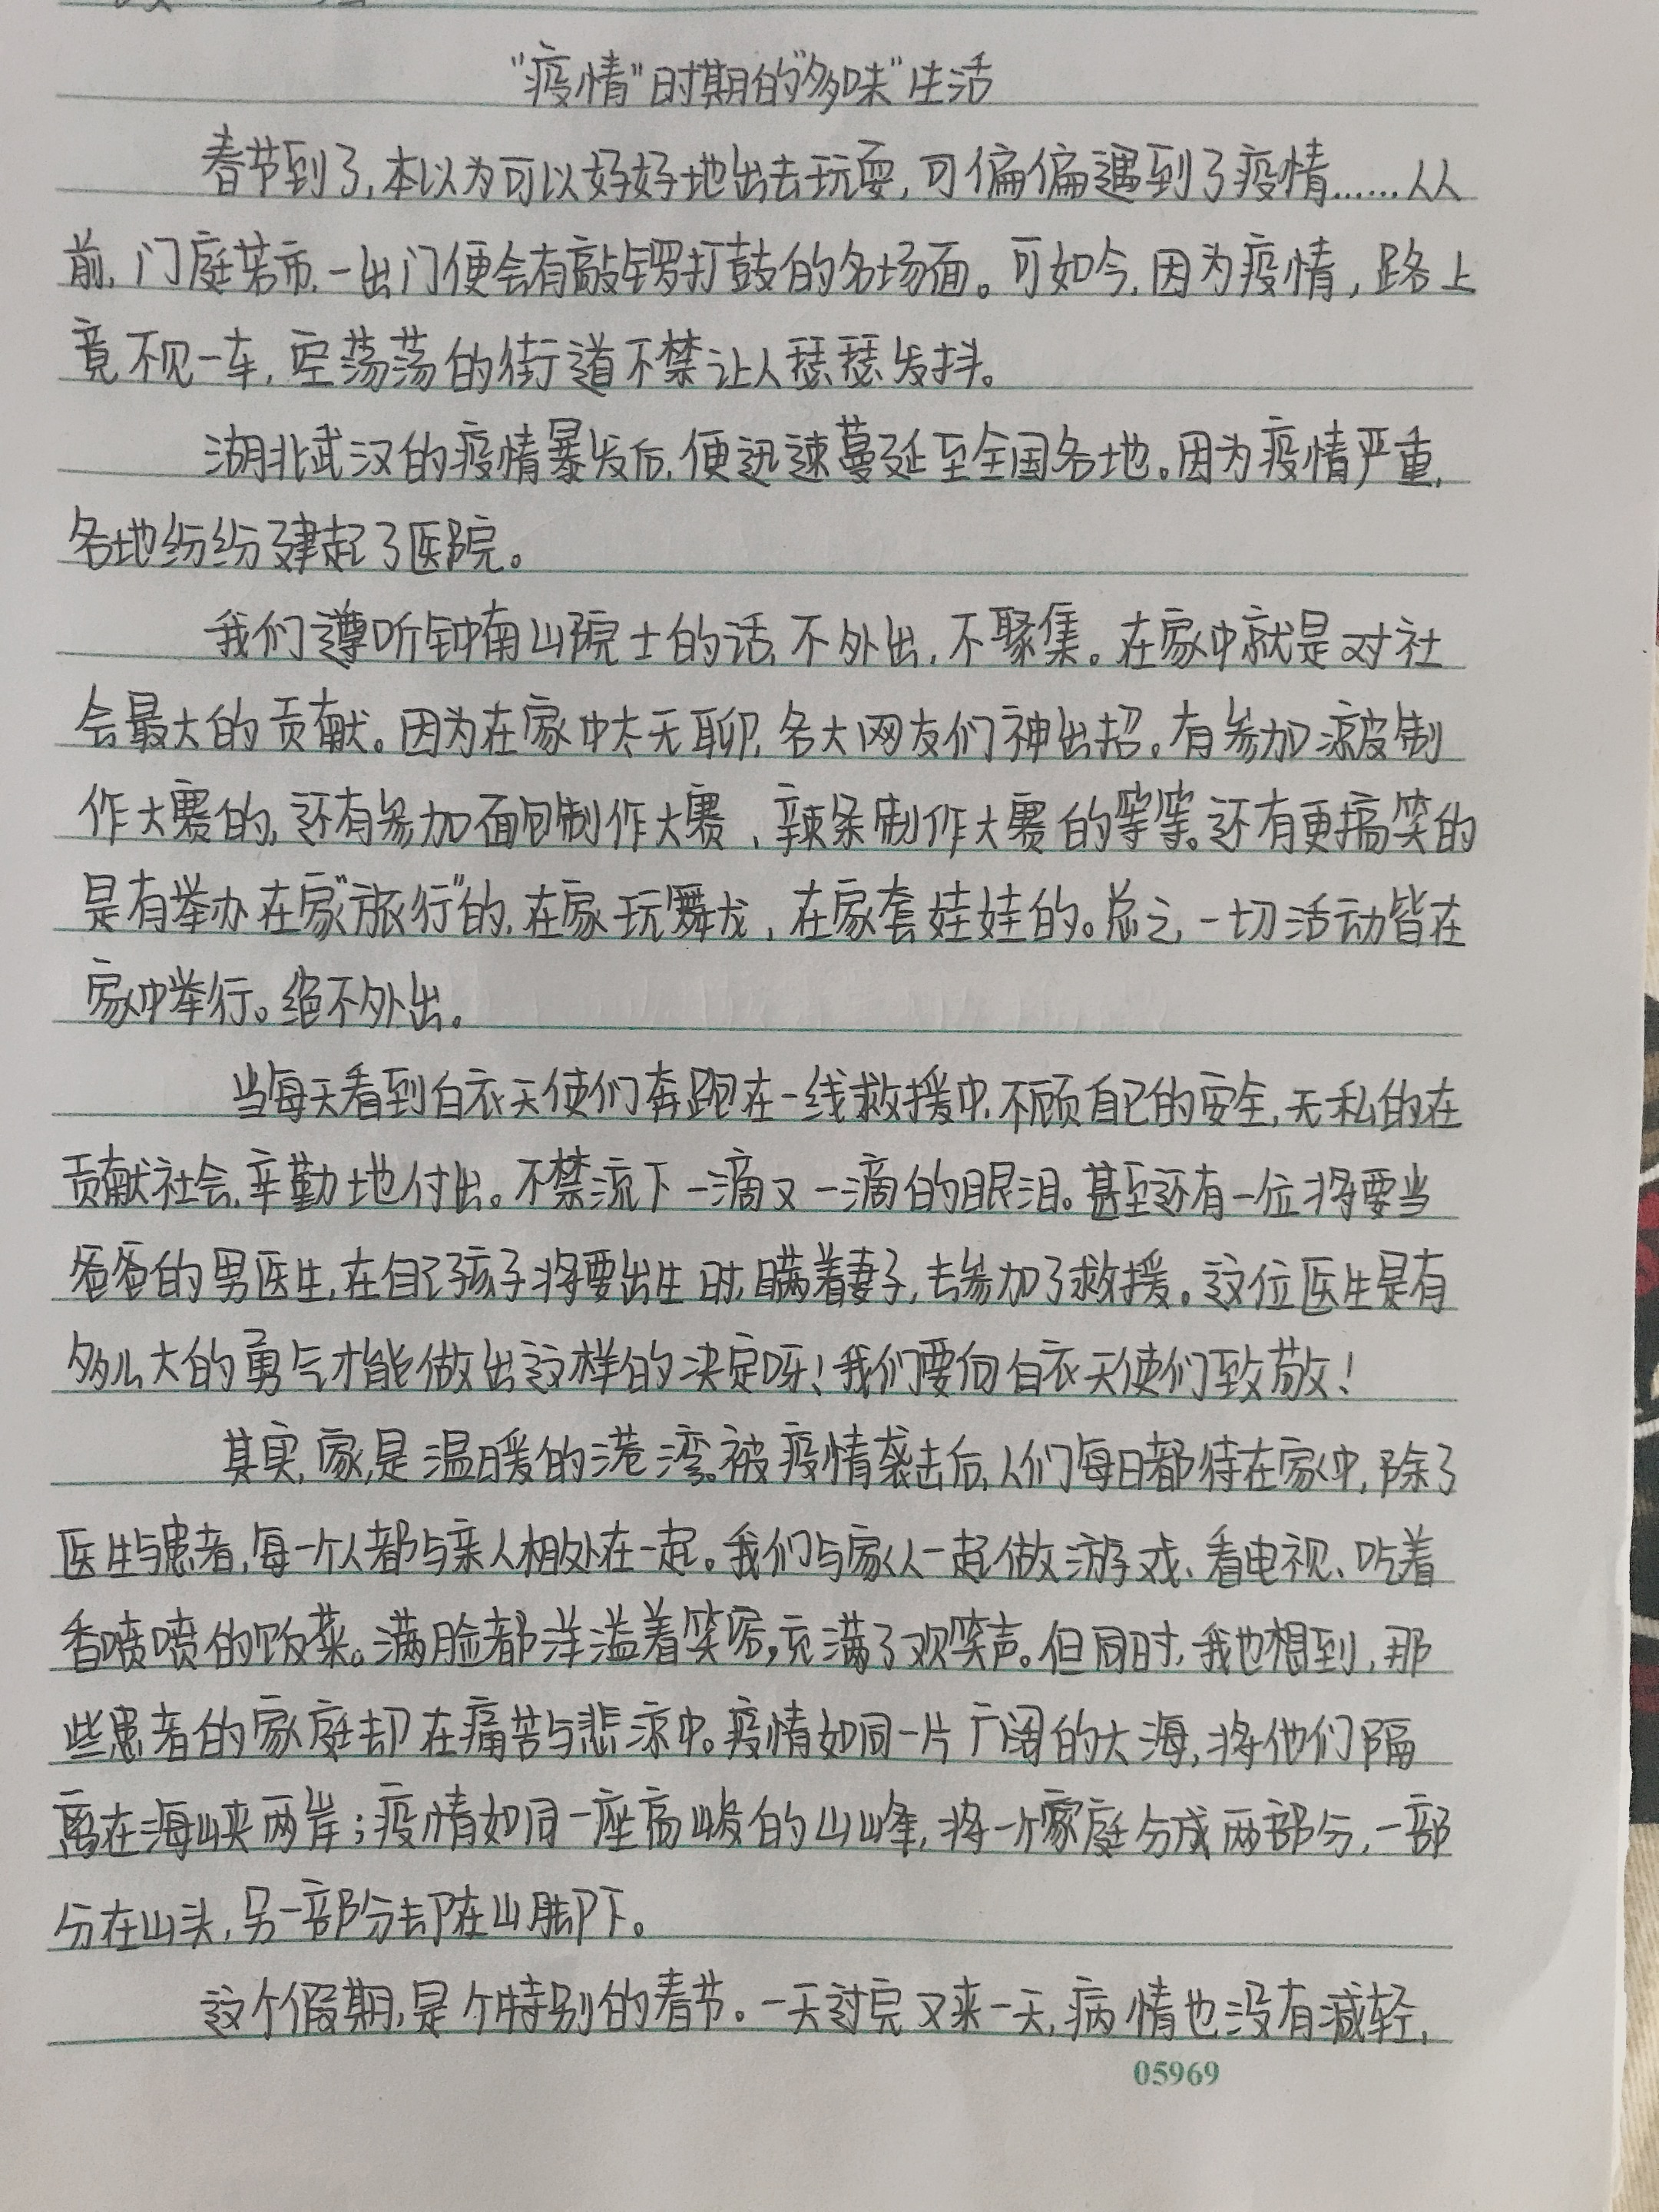 "疫情"时期的"多味"生活
春节到了,本以为可以好好地出去玩耍,可偏偏遇到了疫情……从
前,门庭若市,一出门便会有敲锣打鼓的名场面。可如今,因为疫情,路上
竟不见一车,空荡荡的街道不禁让人瑟瑟发抖。
湖北武汉的疫情暴发后,便迅速蔓延至全国各地。因为疫情严重,
各地纷纷建起了医院。
我们遵听钟南山院士的话,不外出,不聚集。在家中就是对社
会最大的贡献。因为在家中太无聊,各大网友们神出招。有参加凉皮制
作大赛的,还有参加面包制作大赛、辣条制作大赛的等等。还有更搞笑的
是有举办在家"旅行"的,在家玩舞龙,在家套娃娃的。总之,一切活动皆在
家中举行。绝不外出。
当每天看到白衣天使们奔跑在一线救援中,不顾自己的安全,无私的在
贡献社会,辛勤地付出。不禁流下一滴又一滴的眼泪。甚至还有一位将要当
爸爸的男医生,在自己孩子将要出生时,瞒着妻子,去参加了救援。这位医生是有
多么大的勇气才能做出这样的决定呀!我们要向白衣天使们致敬!
其实,家,是温暖的港湾。被疫情袭击后,人们每日都待在家中,除了
医生与患者,每一个人都与亲人相处在一起。我们与家人一起做游戏、看电视、吃着
香喷喷的饭菜。满脸都洋溢着笑容,充满了欢笑声。但同时,我也想到,那
些患者的家庭却在痛苦与悲凉中。疫情如同一片广阔的大海,将他们隔
离在海峡两岸;疫情如同一座高峻的山峰,将一个家庭分成两部分,一部
分在山头,另一部分却在山脚下。
这个假期,是个特别的春节。一天过完又来一天,病情也没有减轻,
05969